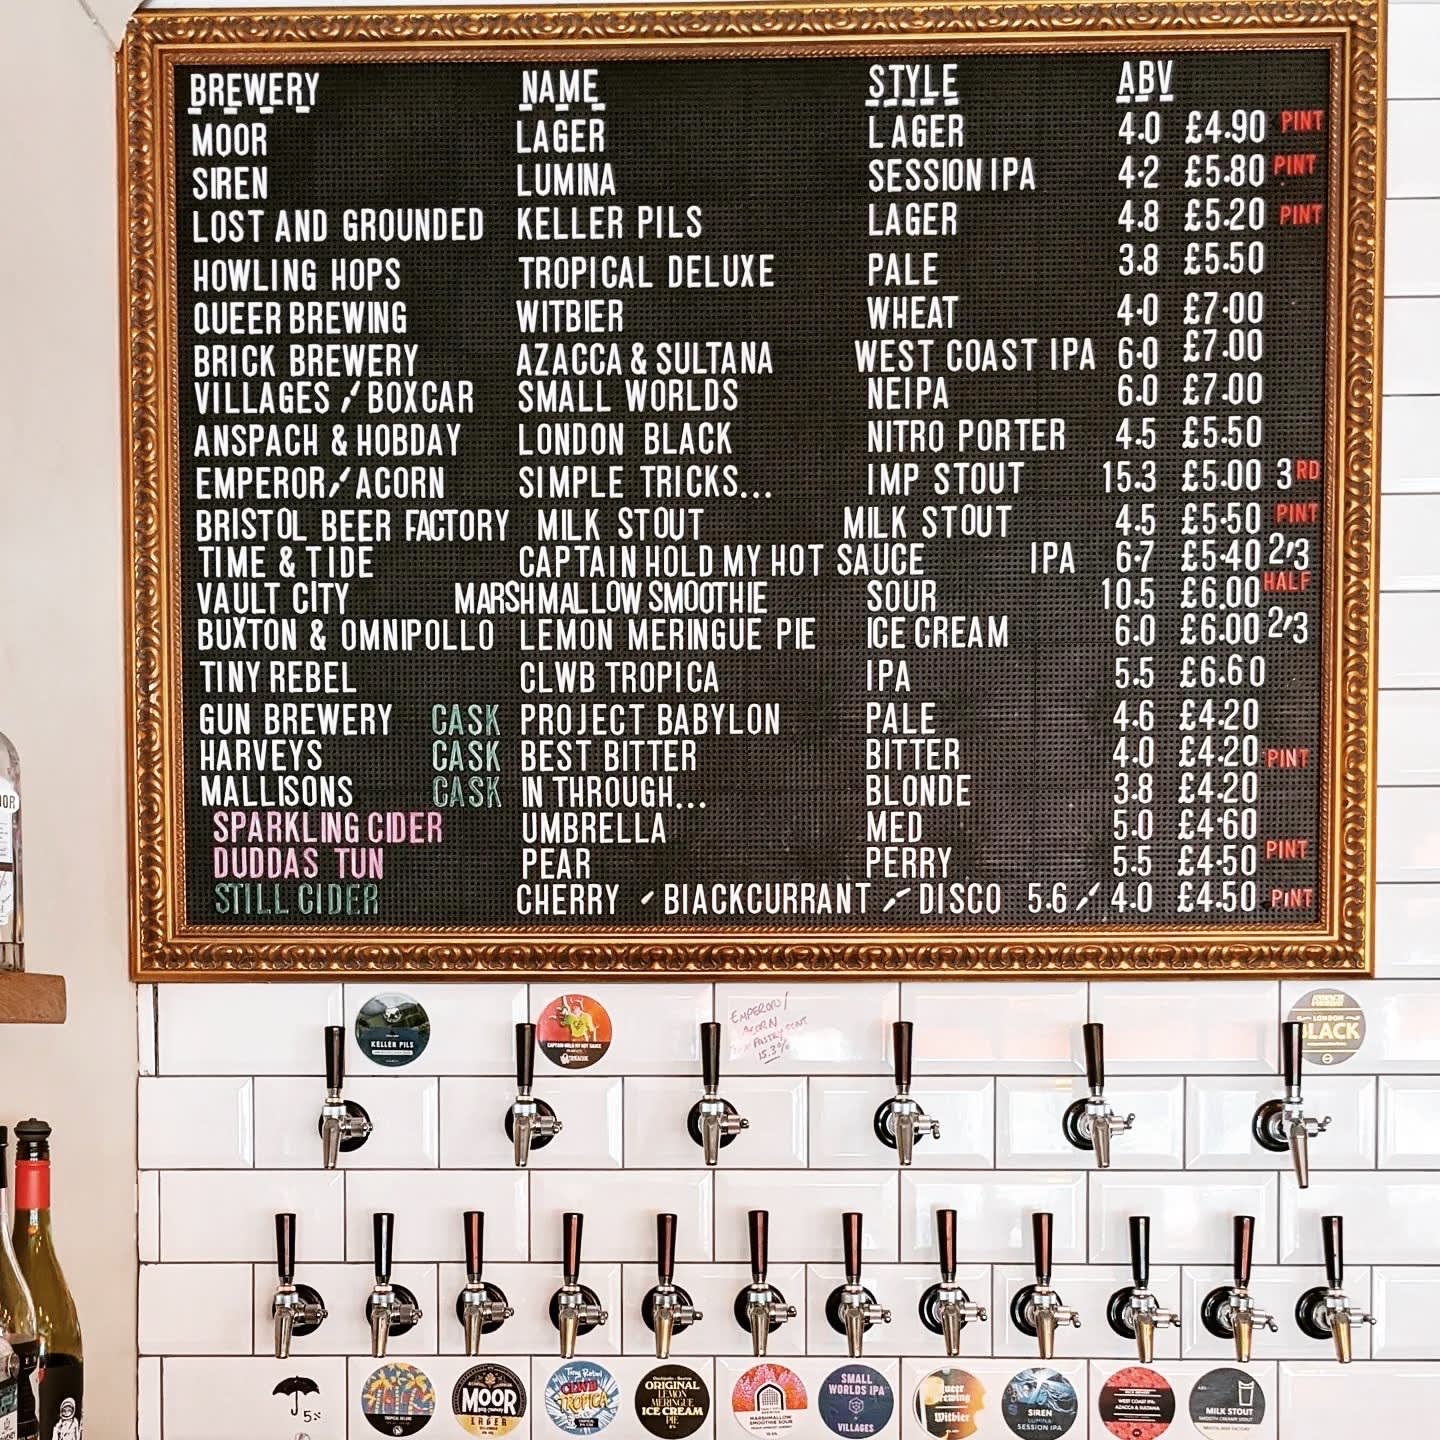 BREWERY NAME STYLE ABV
MOOR LAGER LAGER 4.0 £4.90 PINT
SIREN LUMINA SESSION IPA 4.2 £5.80 PINT
LOST AND GROUNDED KELLER PILS LAGER 4.8 £5.20 PINT
HOWLING HOPS TROPICAL DELUXE PALE 3.8 £5.50
QUEER BREWING WITBIER WHEAT 4.0 £7.00
BRICK BREWERY AZACCA & SULTANA WEST COAST IPA 6.0 £7.00
VILLAGES / BOXCAR SMALL WORLDS NEIPA 6.0 £7.00
ANSPACH & HOBDAY LONDON BLACK NITRO PORTER 4.5 £5.50
EMPEROR/ACORN SIMPLE TRICKS... IMP STOUT 15.3 £5.00 3RD
BRISTOL BEER FACTORY MILK STOUT MILK STOUT 4.5 £5.50 PINT
TIME & TIDE CAPTAIN HOLD MY HOT SAUCE IPA 6.7 £5.40 2/3
VAULT CITY MARSHMALLOW SMOOTHIE SOUR 10.5 £6.00 HALF
BUXTON & OMNIPOLLO LEMON MERINGUE PIE ICE CREAM 6.0 £6.00 2/3
TINY REBEL CLWB TROPICA IPA 5.5 £6.60
GUN BREWERY CASK PROJECT BABYLON PALE 4.6 £4.20
HARVEYS CASK BEST BITTER BITTER 4.0 £4.20 PINT
MALLISONS CASK IN THROUGH... BLONDE 3.8 £4.20
SPARKLING CIDER UMBRELLA MED 5.0 £4.60
DUDDAS TUN PEAR PERRY 5.5 £4.50 PINT
STILL CIDER CHERRY / BIACKCURRANT / DISCO 5.6 / 4.0 £4.50 PiNT
KELLER PILS
CAPTAIN HOLD MY HOT SAUCE
EMPEROR/
ACORN
PASTRY STOUT
15.3%
LONDON
BLACK
5%
TROPICAL DELUXE
MOOR
LAGER
Tiny Rebel
CLWB
TROPICA
ORIGINAL
LEMON
MERINGUE
ICE CREAM
PIE
MARSHMALLOW
SMOOTHIE SOUR
SMALL
WORLDS IPA
VILLAGES
Queer
Brewing
Witbier
SIREN
LUMINA
SESSION IPA
WEST COAST IPA
AZACCA & SULTANA
MILK STOUT
SMOOTH CREAMY STOUT